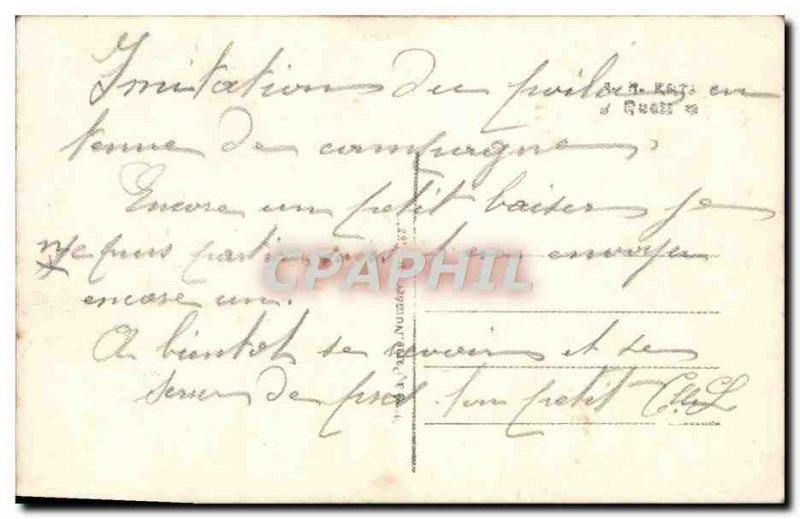 Imitation du poilu en
tenue de campagne
Encore un petit baiser je
puis partir t'en envoyer
encore un.
A bientot se revoir et se
serrer de pres. ton petit
CPAPHIL